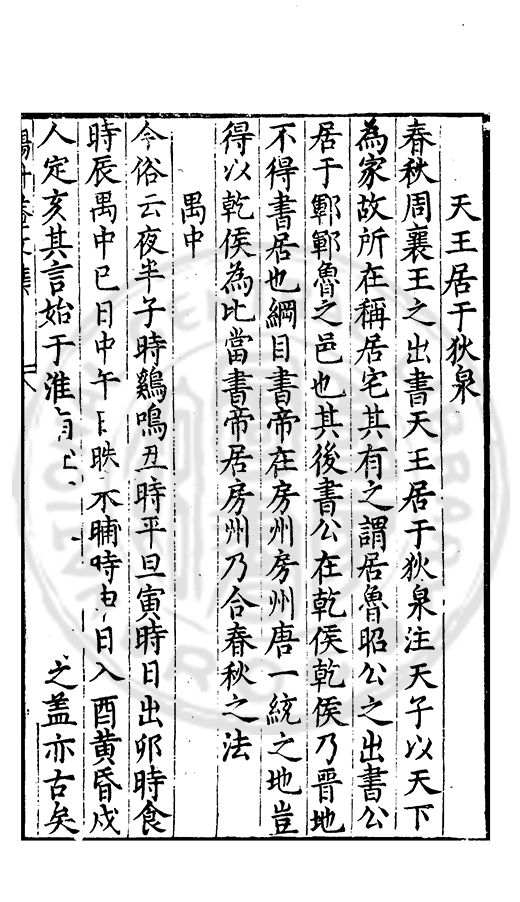 天王居于狄泉
春秋周襄王之出書天王居于狄泉注天子以天下
為家故所在稱居宅其有之謂居魯昭公之出書公
居于鄆鄆魯之邑也其後書公在乾侯乾侯乃晋地
不得書居也綱目書帝在房州房州唐一統之地豈
得以乾侯為比當書帝居房州乃合春秋之法
禺中
今俗云夜半子時鷄鳴丑時平旦寅時日出卯時食
時辰禺中巳日中午日昳未晡時申日入酉黄昏戌
人定亥其言始于淮南 之盖亦古矣